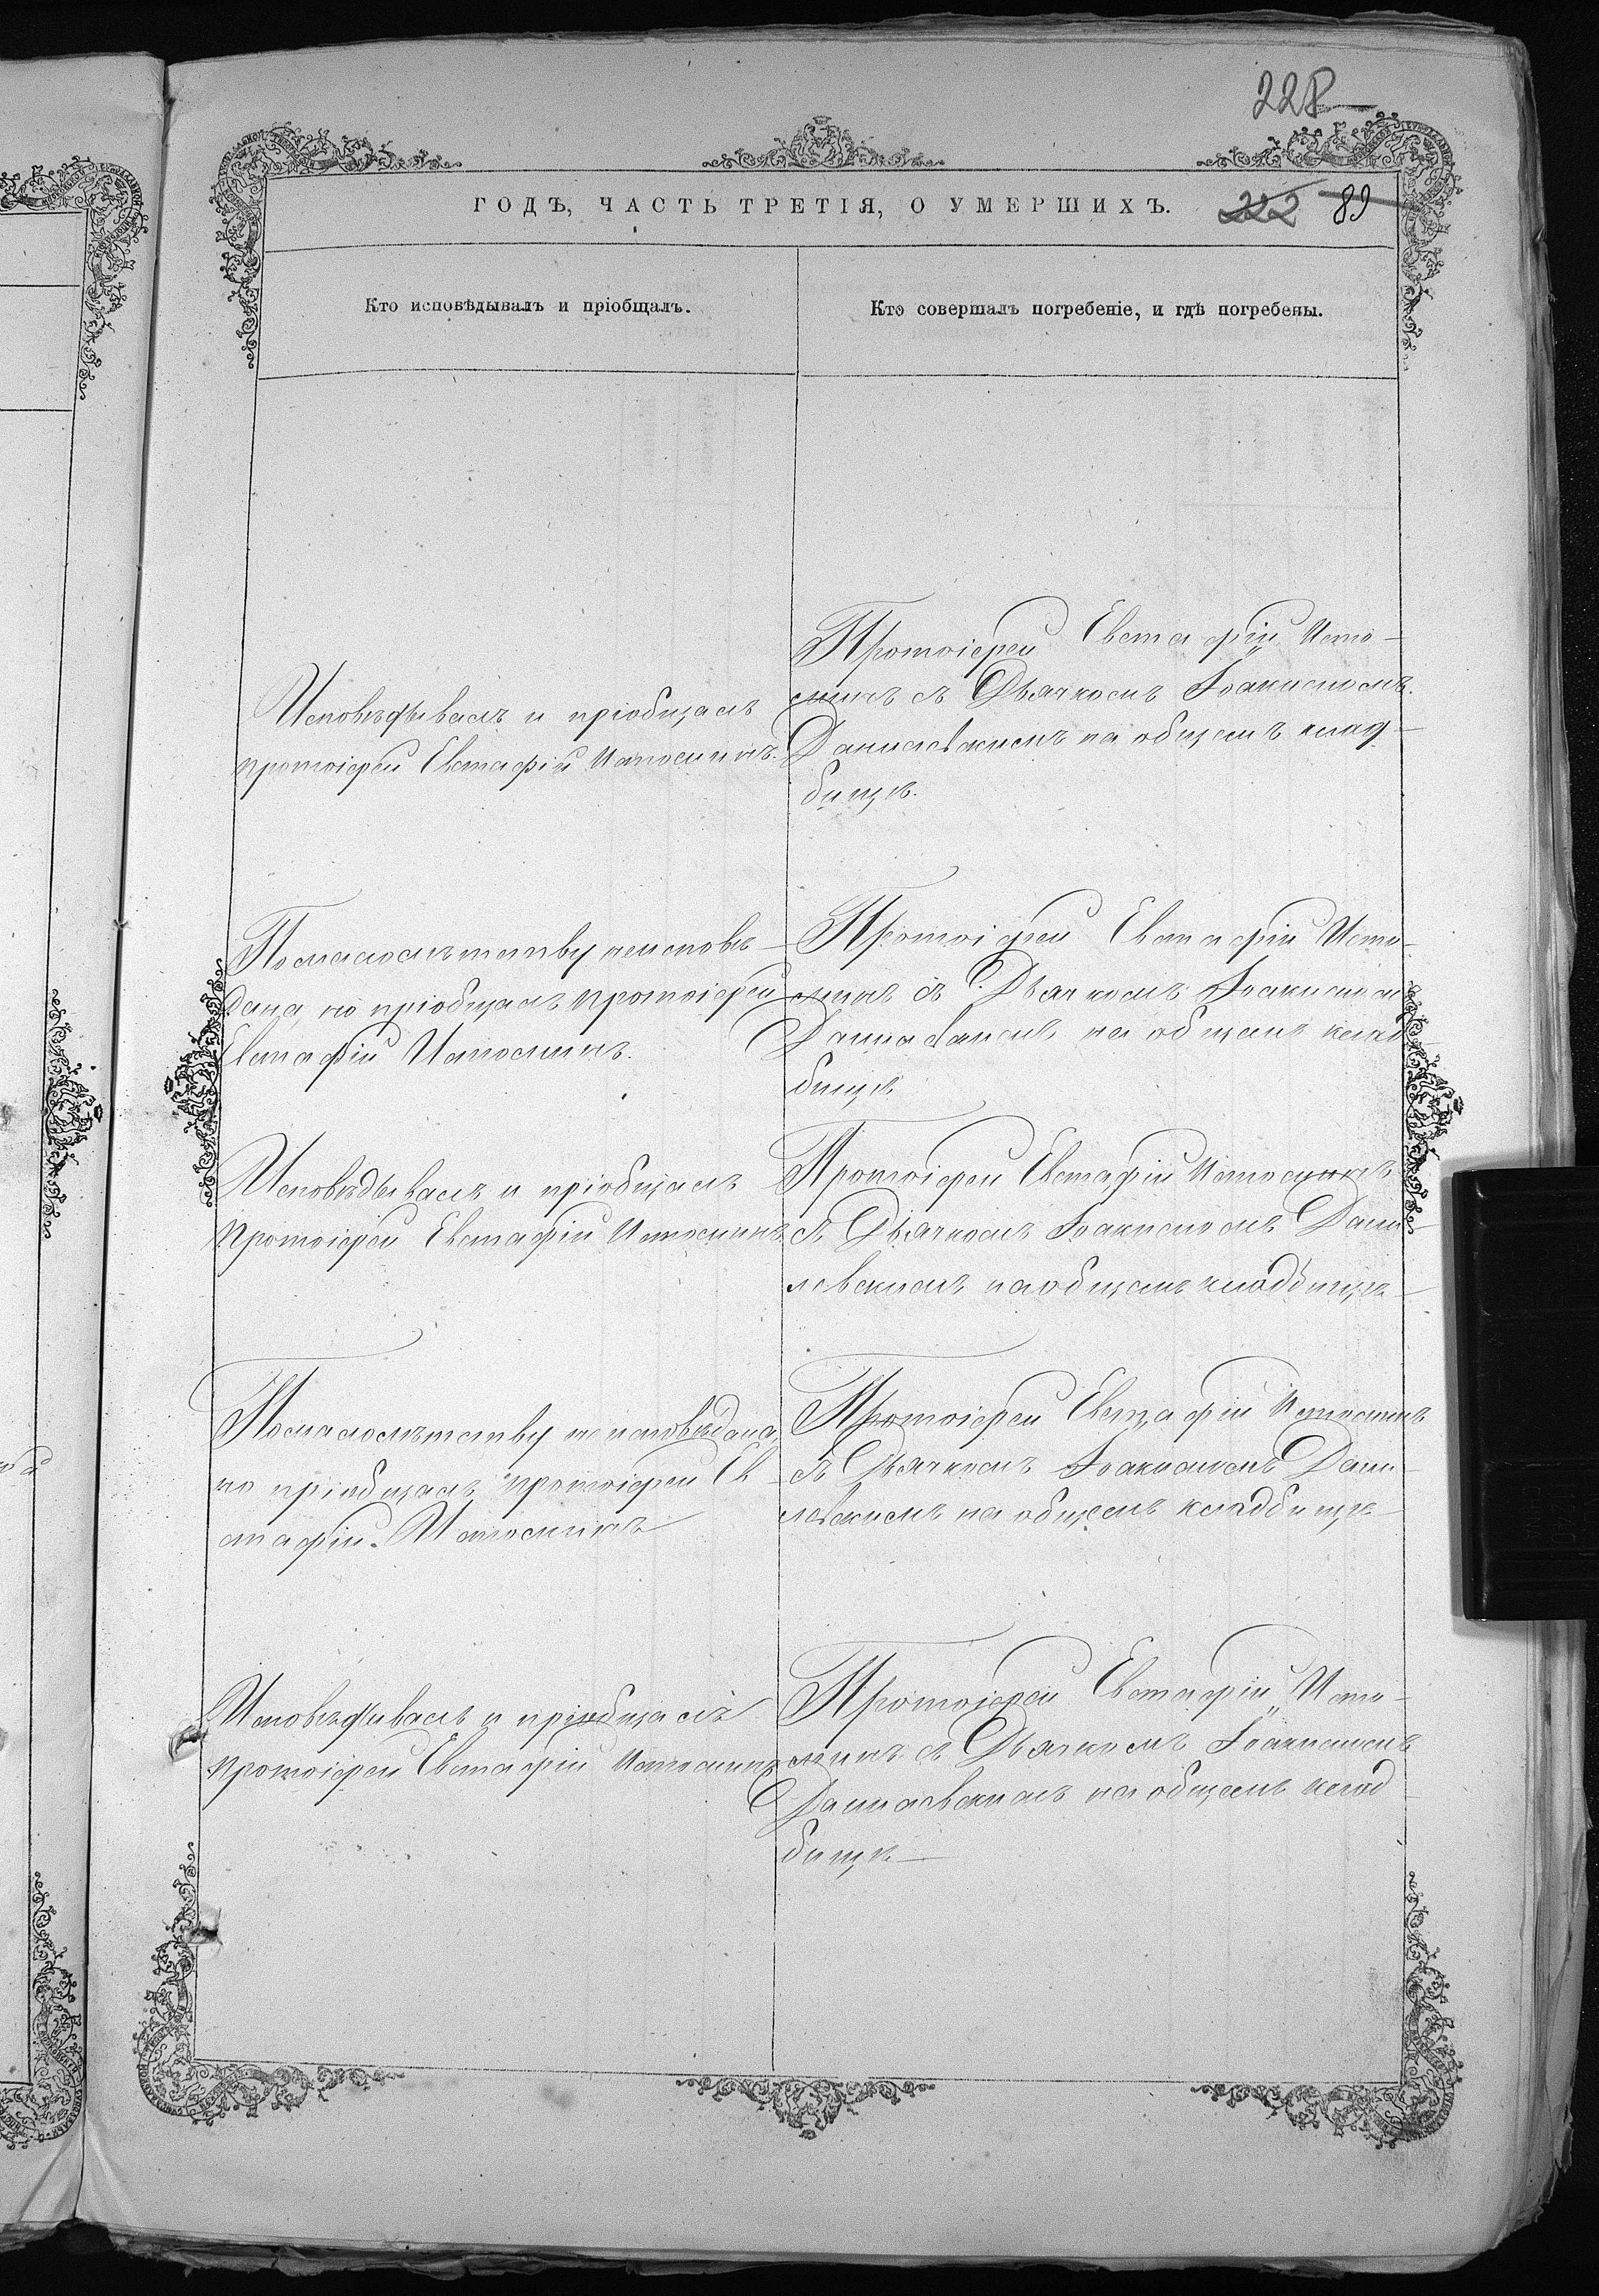 228
ГОДЪ, ЧАСТЬ ТРЕТІЯ, О УМЕРШИХЪ.
222 89
Кто исповѣдывалъ и пріобщалъ.
Кто совершалъ погребеніе, и гдѣ погребены.
Исповѣдывалъ и пріобщалъ
протоіерей Евстафій Истоминъ.
Протоіерей Евстафій Исто-
минъ съ Дьячкомъ Іоакимомъ
Данилевскимъ на общемъ клад-
бищѣ.
По малолѣтству неисповѣ-
дана, но пріобщалъ протоіерей
Евстафій Истоминъ.
Протоіерей Евстафій Исто-
минъ съ Дьячкомъ Іоакимомъ
Данилевскимъ на общемъ клад-
бищѣ
Исповѣдывалъ и пріобщалъ
протоіерей Евстафій Истоминъ
Протоіерей Евстафій Истоминъ
съ Дьячкомъ Іоакимомъ Дани-
левскимъ на общемъ кладбищѣ
По малолѣтству не исповѣдана,
но пріобщалъ протоіерей Ев-
стафій Истоминъ
Протоіерей Евстафій Истоминъ
съ Дьячкомъ Іоакимомъ Дани-
левскимъ на общемъ кладбищѣ
Исповѣдывалъ и пріобщалъ
протоіерей Евстафій Истоминъ
Протоіерей Евстафій Исто-
минъ съ Дьячкомъ Іоакимомъ
Данилевскимъ на общемъ клад-
бищѣ